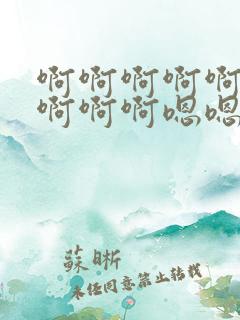 啊啊啊啊啊
啊啊啊嗯嗯
蘇晰
未经同意禁止转载